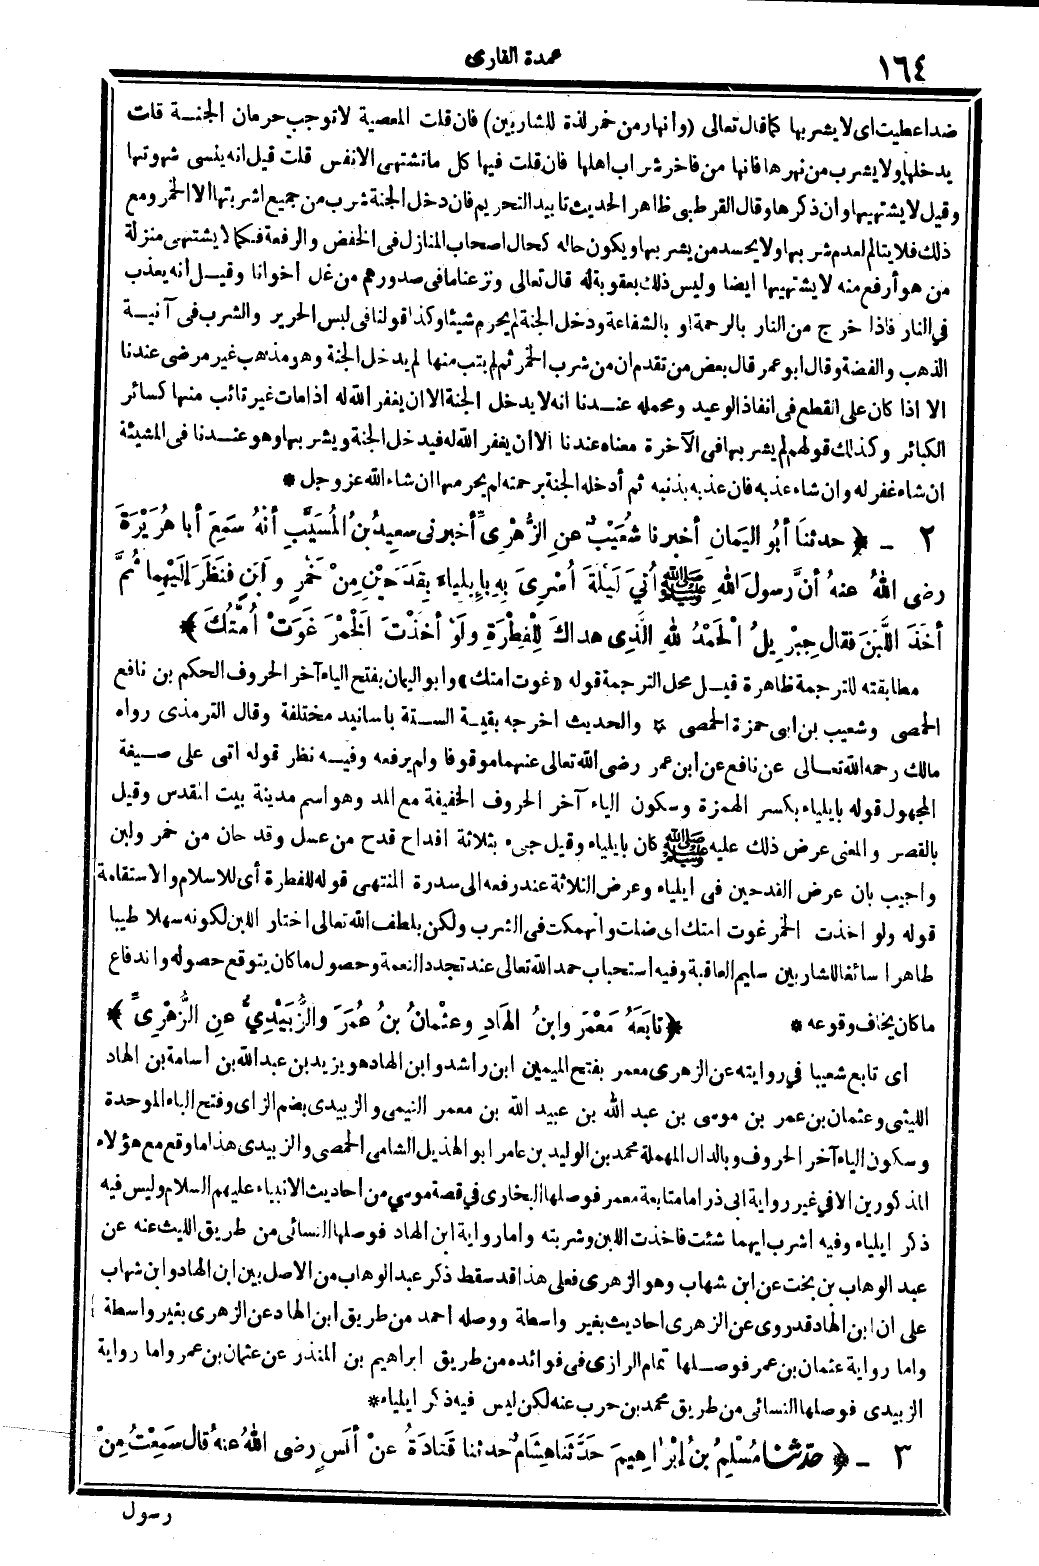 ١٦٤
عمدة القارى
ضد اعطيت اى لا يشربها كما قال تعالى (وأنهار من خمر لذة للشاربين) فان قلت المعصية لا توجب حرمان الجنة قلت
يدخلها ولا يشرب من نهرها فانها من فاخر شراب اهلها فان قلت فيها كل ما تشتهى الانفس قلت قيل انه ينسى شهوتها
وقيل لا يشتهيها وان ذكرها وقال القرطبى ظاهر الحديث تابيد التحريم فان دخل الجنة شرب من جميع اشربتها الا الخمر ومع
ذلك فلا يتالم لعدم شربها ولا يحسد من يشربها ويكون حاله كحال اصحاب المنازل فى الخفض والرفعة فكما لا يشتهى منزلة
من هو أرفع منه لا يشتهيها ايضا وليس ذلك بعقوبة له قال تعالى ونزعنا ما فى صدورهم من غل اخوانا وقيل أنه يعذب
في النار فاذا خرج من النار بالرحمة او بالشفاعة ودخل الجنة لم يحرم شيئا وكذا قولنا فى لبس الحرير والشرب فى آنية
الذهب والفضة وقال ابو عمر قال بعض من تقدم ان من شرب الخمر ثم لم يتب منها لم يدخل الجنة وهو مذهب غير مرضى عندنا
الا اذا كان على القطع فى انفاذ الوعيد ومحمله عندنا انه لا يدخل الجنة الا ان يغفر الله له اذا مات غير تائب منها كسائر
الكبائر وكذلك قولهم لم يشربها فى الآخرة معناه عندنا الا أن يغفر الله له فيدخل الجنة ويشربها وهو عندنا فى المشيئة
ان شاء غفر له وان شاء عذبه فان عذبه بذنبه ثم أدخله الجنة برحمته لم يحرمها ان شاء الله عز وجل *
٢ - ﴿ حدثنَا أبُو اليَمانِ أخبرنا شُعَيْبٌ عنِ الزُّهْرِىِّ أخبرنى سعيدُ بنُ المُسَيَّبِ أنَّهُ سَمِعَ أبا هُرَيْرَةَ
رضى اللهُ عنهُ أنَّ رسولَ اللهِ ﷺ أُتِيَ لَيْلَةَ أُسْرِىَ بِهِ بِإِيلياءَ بِقَدَحَيْنِ مِنْ خَمْرٍ ولَبَنٍ فنَظَرَ إلَيْهِما ثُمَّ
أخَذَ اللَّبَنَ فقال جِبْرِيلُ الْحَمْدُ للهِ الَّذِى هداكَ لِلْفِطْرَةِ ولَوْ أخَذْتَ الخَمْرَ غَوَتْ أُمَّتُكَ ﴾
مطابقته للترجمة ظاهرة قيل محل الترجمة قوله «غوت امتك» وابو اليمان بفتح الياء آخر الحروف الحكم بن نافع
الحمصى وشعيب بن ابى حمزة الحمصى * والحديث اخرجه بقية الستة باسانيد مختلفة وقال الترمذى رواه
مالك رحمه الله تعالى عن نافع عن ابن عمر رضى الله تعالى عنهما موقوفا ولم يرفعه وفيه نظر قوله اتى على صيغة
المجهول قوله بايلياء بكسر الهمزة وسكون الياء آخر الحروف الخفيفة مع المد وهو اسم مدينة بيت المقدس وقيل
بالقصر والمعنى عرض ذلك عليه ﷺ كان بايلياء وقيل جىء بثلاثة اقداح قدح من عسل وقدحان من خمر ولبن
واجيب بان عرض القدحين فى ايلياء وعرض الثلاثة عند رفعه الى سدرة المنتهى قوله للفطرة أى للاسلام والاستقامة
قوله ولو اخذت الخمر غوت امتك اى ضلت وانهمكت فى الشرب ولكن بلطف الله تعالى اختار اللبن لكونه سهلا طيبا
طاهرا سائغا للشاربين سليم العاقبة وفيه استحباب حمد الله تعالى عند تجدد النعمة وحصول ما كان يتوقع حصوله واندفاع
ما كان يخاف وقوعه * ﴿ تابَعَهُ مَعْمَرٌ وابنُ الهَادِ وعثْمانُ بنُ عُمَرَ والزُّبَيْدِيُّ عنِ الزُّهْرِىِّ ﴾
اى تابع شعيبا في روايته عن الزهرى معمر بفتح الميمين ابن راشد وابن الهاد هو يزيد بن عبد الله بن أسامة بن الهاد
الليثى وعثمان بن عمر بن موسى بن عبد الله بن عبيد الله بن معمر التيمى والزبيدى بضم الزاى وفتح الباء الموحدة
وسكون الياء آخر الحروف وبالدال المهملة محمد بن الوليد بن عامر ابو الهذيل الشامى الحمصى والزبيدى هذا ما وقع مع هؤلاء
المذكورين الا في غير رواية ابى ذر اما متابعة معمر فوصلها البخارى في قصة موسي من احاديث الانبياء عليهم السلام وليس فيه
ذكر ايلياء وفيه اشرب ايهما شئت فاخذت اللبن وشربته واما رواية ابن الهاد فوصلها النسائى من طريق الليث عنه عن
عبد الوهاب بن بخت عن ابن شهاب وهو الزهرى فعلى هذا قد سقط ذكر عبد الوهاب من الاصل بين ابن الهاد وابن شهاب
على ان ابن الهاد قد روى عن الزهرى احاديث بغير واسطة ووصله احمد من طريق ابن الهاد عن الزهرى بغير واسطة
واما رواية عثمان بن عمر فوصلها تمام الرازى فى فوائده من طريق ابراهيم بن المنذر عن عثمان بن عمر واما رواية
الزبيدى فوصلها النسائى من طريق محمد بن حرب عنه لكن ليس فيه ذكر ايلياء *
٣ - ﴿ حدثنا مُسْلِمُ بنُ إبْراهِيمَ حَدَّثَنا هِشَامٌ حدثنا قَتَادَةُ عنْ أنَسٍ رضى اللهُ عنهُ قال سَمِعْتُ مِنْ
رسول